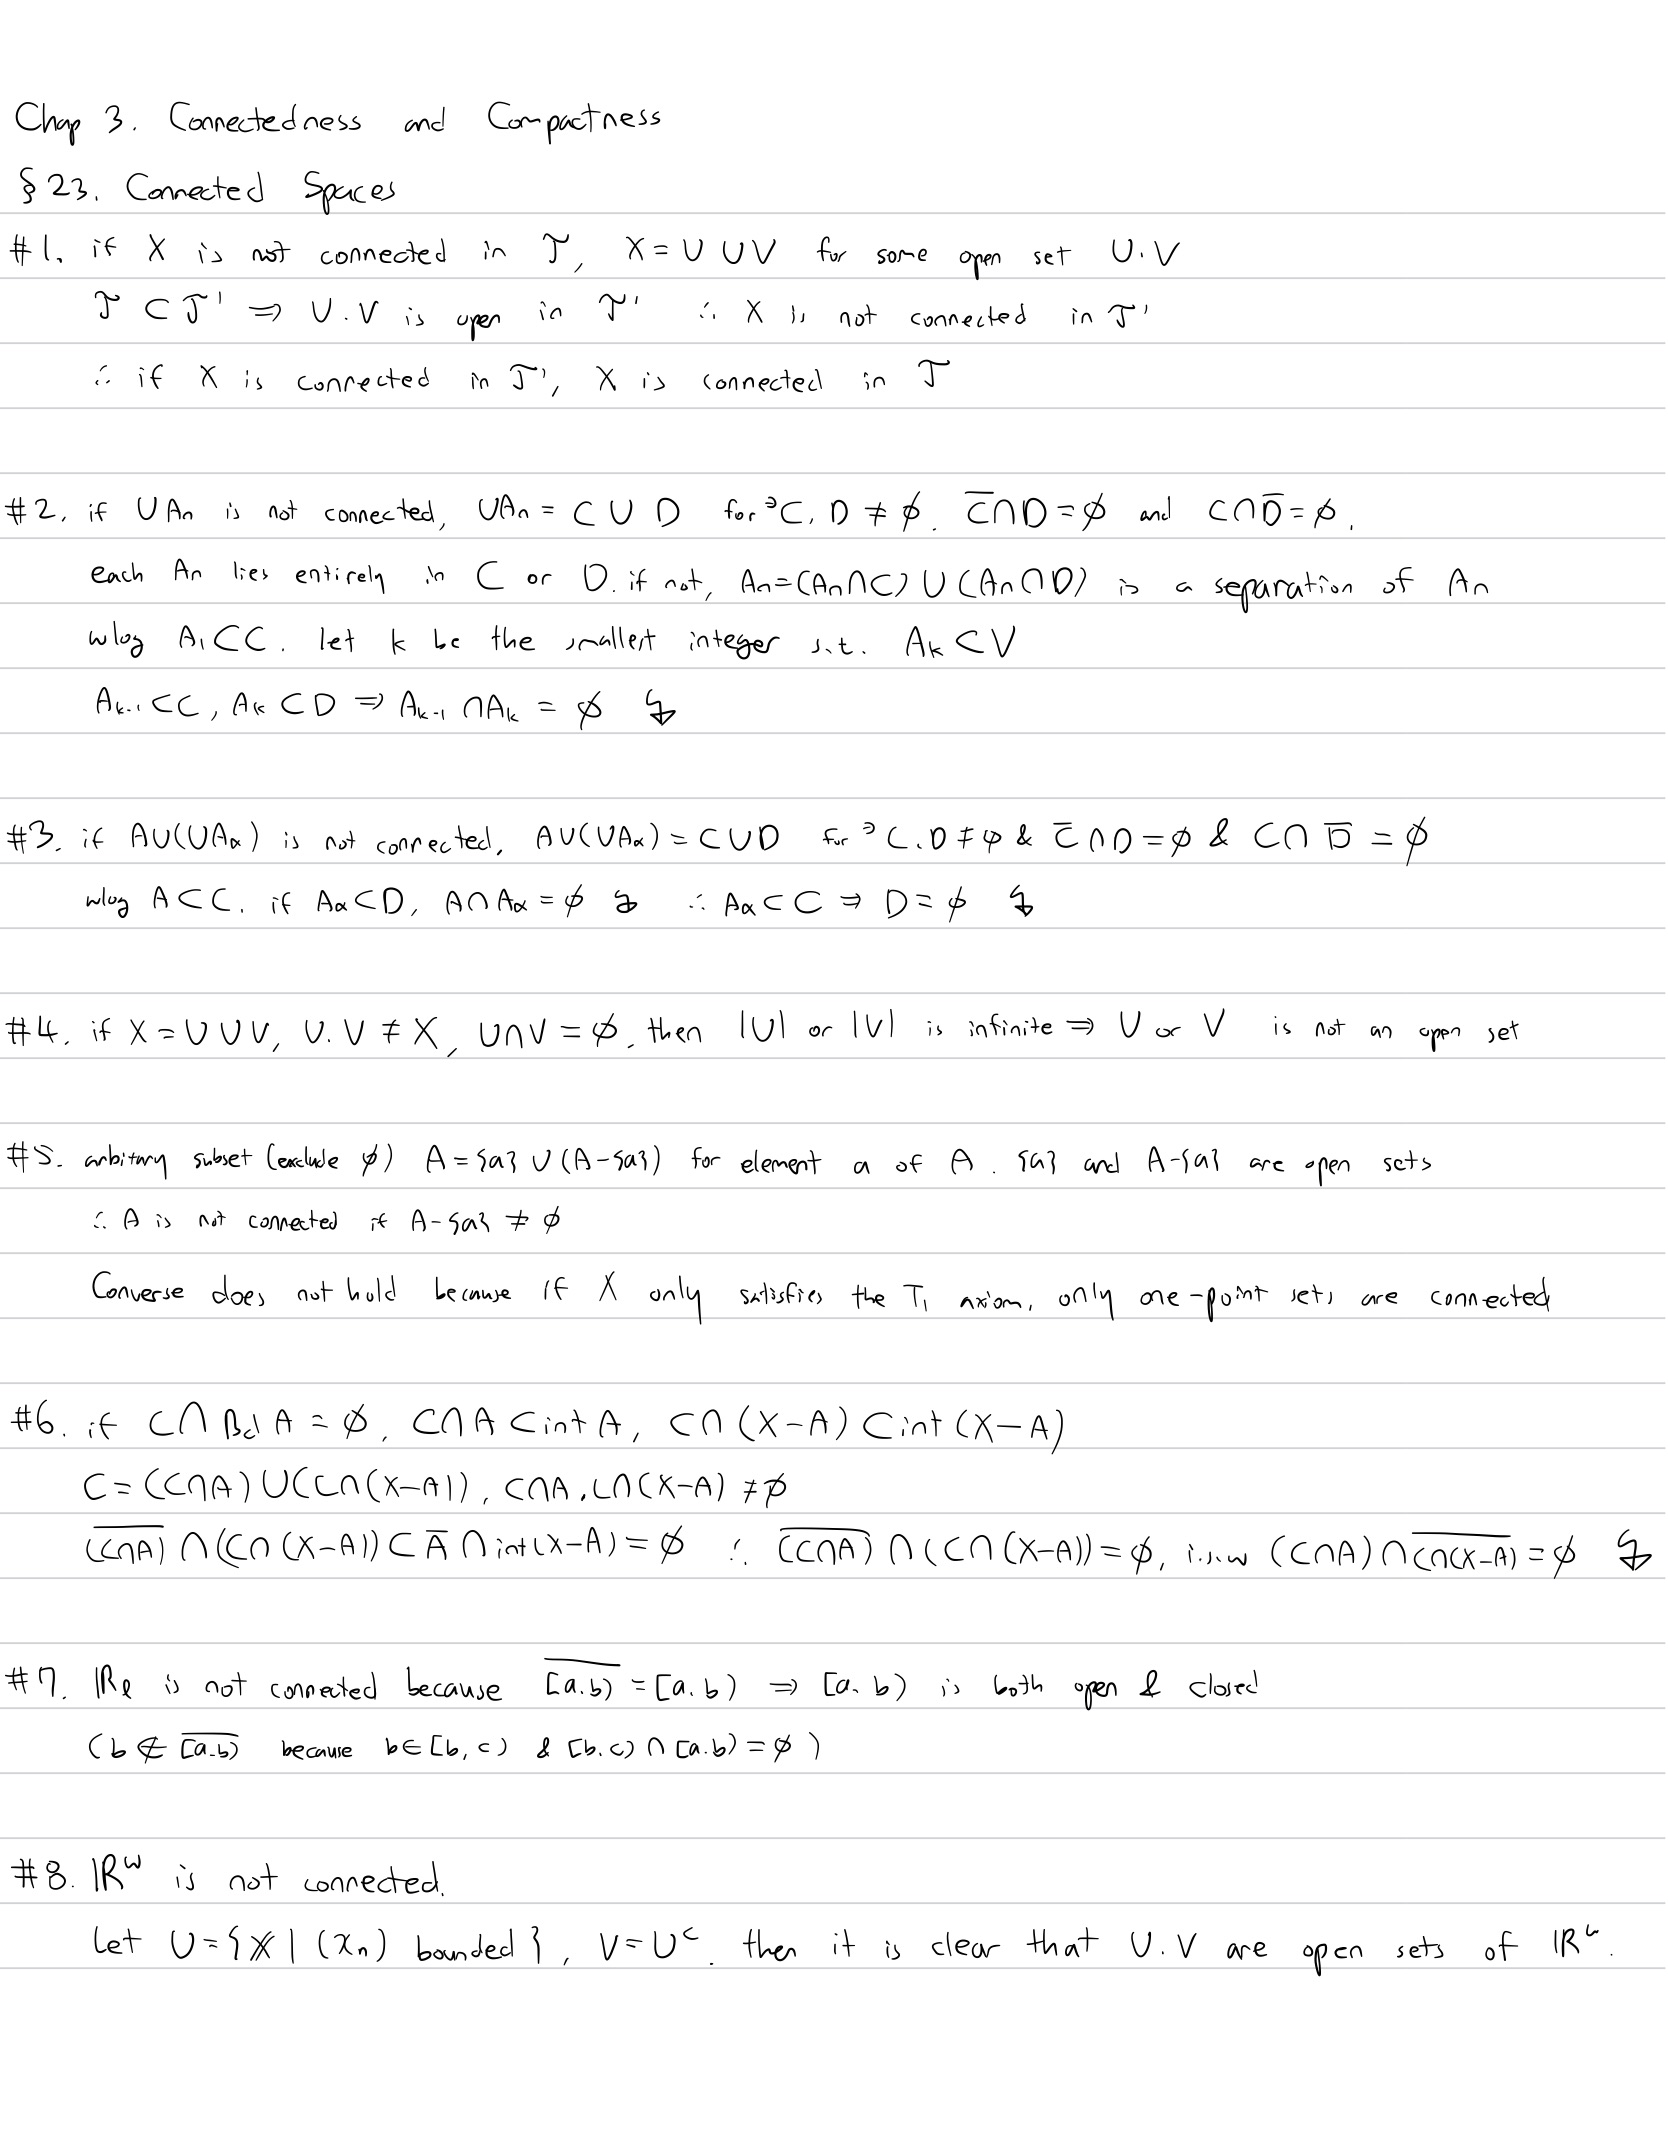 Chap 3. Connectedness and Compactness
§ 23. Connected Spaces
#1. if X is not connected in 𝒯, X = U ∪ V for some open set U.V
𝒯 ⊂ 𝒯' ⇒ U.V is open in 𝒯' ∴ X is not connected in 𝒯'
∴ if X is connected in 𝒯', X is connected in 𝒯
#2. if ∪An is not connected, ∪An = C ∪ D for ∃C, D ≠ ∅. C̅∩D = ∅ and C∩D̅ = ∅.
each An lies entirely in C or D. if not, An = (An∩C) ∪ (An∩D) is a separation of An
wlog A₁⊂C. let k be the smallest integer s.t. Aₖ ⊂ V
Aₖ₋₁ ⊂ C, Aₖ ⊂ D ⇒ Aₖ₋₁ ∩ Aₖ = ∅ ↯
#3. if A∪(∪Aα) is not connected, A∪(∪Aα) = C∪D for ∃C.D ≠ φ & C̅∩D = ∅ & C∩D̅ = ∅
wlog A⊂C. if Aα⊂D, A∩Aα = ∅ ↯ ∴ Aα⊂C ⇒ D = ∅ ↯
#4. if X = U∪V, U.V ≠ X, U∩V = ∅. then |U| or |V| is infinite ⇒ U or V is not an open set
#5. arbitary subset (exclude ∅) A = {a} ∪ (A-{a}) for element a of A. {a} and A-{a} are open sets
∴ A is not connected if A-{a} ≠ ∅
Converse does not hold because if X only satisfies the T₁ axiom, only one-point sets are connected
#6. if C∩Bd A = ∅, C∩A ⊂ int A, C∩(X-A) ⊂ int (X-A)
C = (C∩A)∪(C∩(X-A)), C∩A, C∩(X-A) ≠ ∅
\overline{(C∩A)} ∩ (C∩(X-A)) ⊂ A̅ ∩ int(X-A) = ∅ ∴ \overline{(C∩A)} ∩ (C∩(X-A)) = ∅, i.s.w (C∩A)∩\overline{C∩(X-A)} = ∅ ↯
#7. ℝℓ is not connected because \overline{[a.b)} = [a.b) ⇒ [a.b) is both open & closed
(b ∉ \overline{[a.b)} because b∈[b,c) & [b.c) ∩ [a.b) = ∅)
#8. ℝ^ω is not connected.
Let U = {𝕏 | (xn) bounded}, V = U^c. then it is clear that U.V are open sets of ℝ^ω.